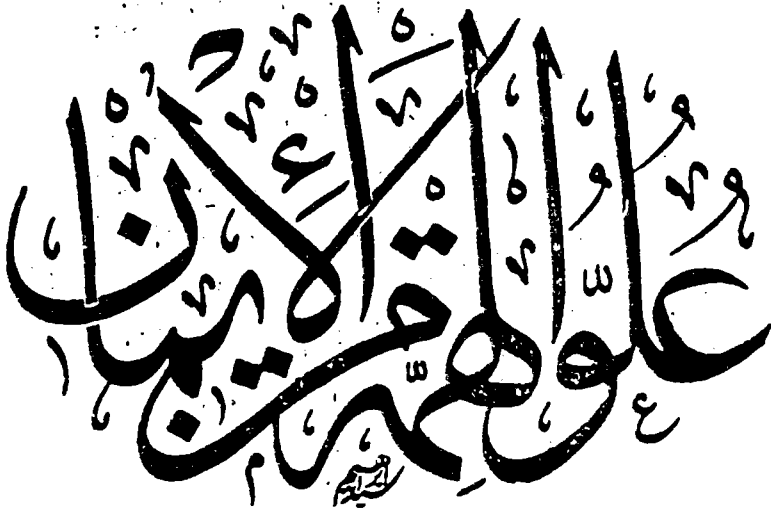 عُلُوُّ الْهِمَّةِ مِنَ الْإِيمَانِ